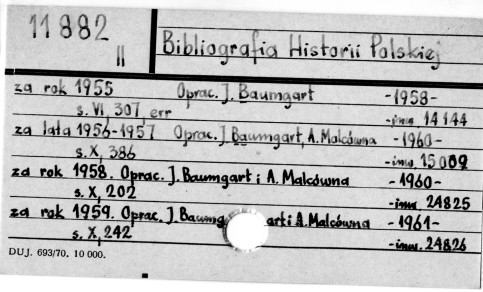 11882
II
Bibliografia Historii Polskiej
za rok 1955 Oprac. J. Baumgart -1958-
s. VI, 307, err -inw. 14144
za lata 1956-1957 Oprac. J. Baumgart, A. Malcówna -1960-
s. X, 386 -inw. 15009
za rok 1958. Oprac. J. Baumgart i A. Malcówna -1960-
s. X, 202 -inw. 24825
za rok 1959. Oprac. J. Baumgart i A. Malcówna -1961-
s. X, 242 -inw. 24826
DUJ. 693/70. 10 000.